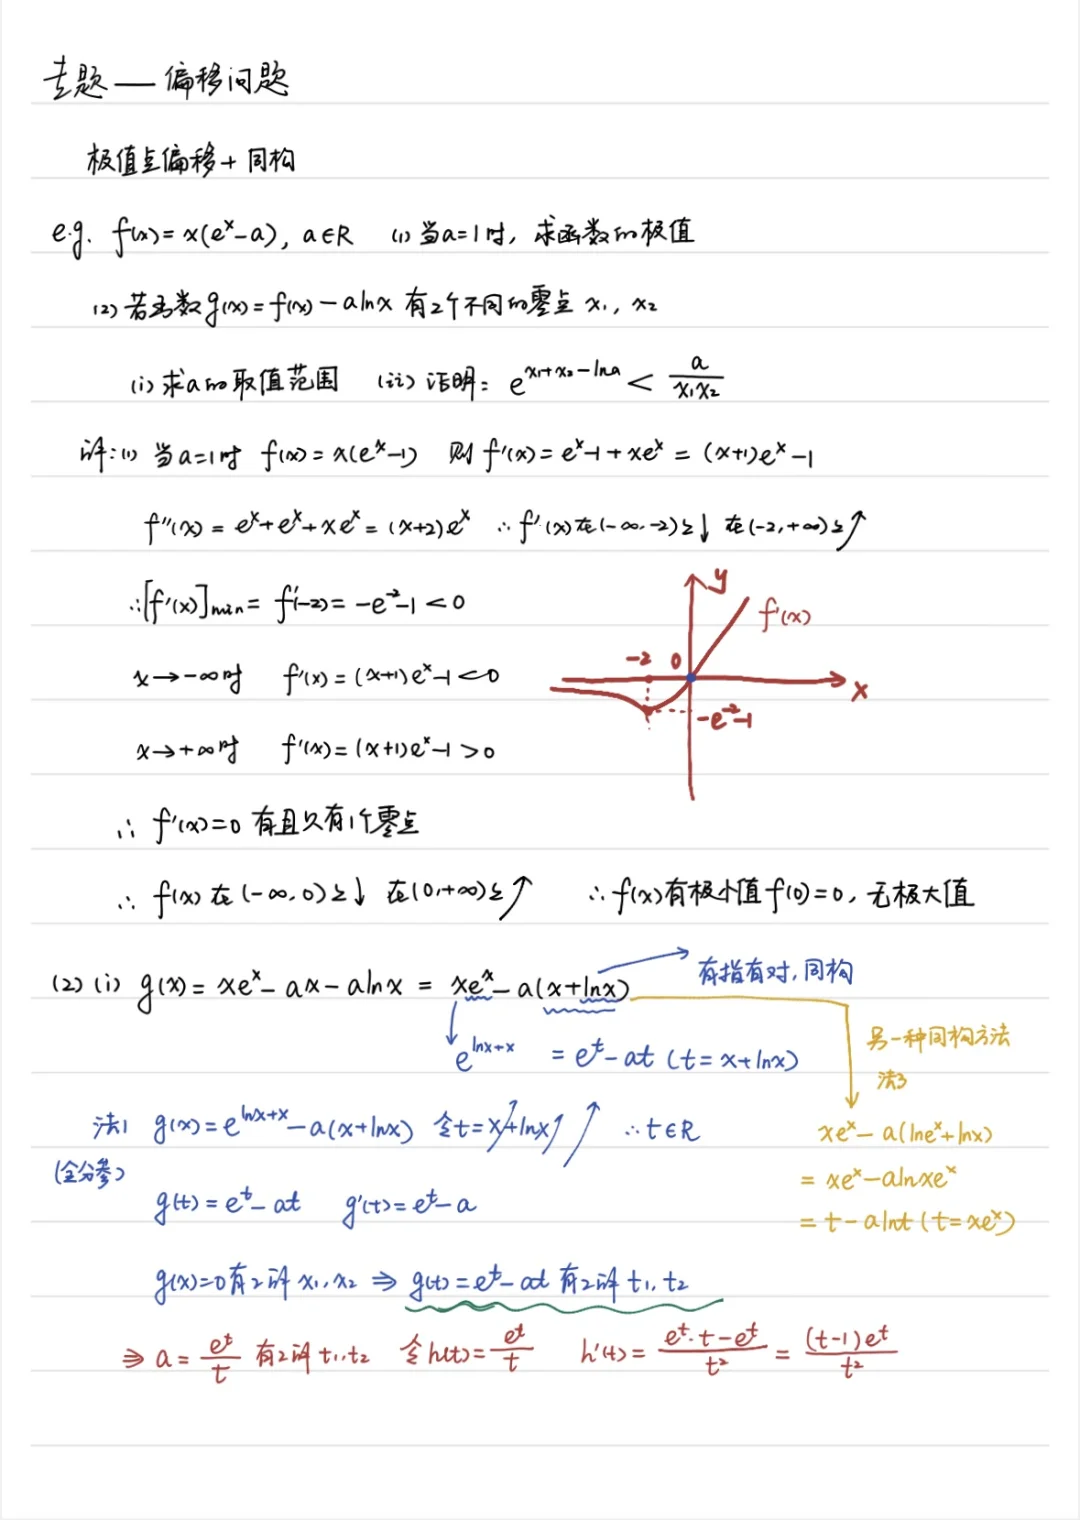 专题 — 偏移问题
极值点偏移 + 同构
e.g. f(x)= x(eˣ-a), a∈R (1) 当a=1时, 求函数的极值
(2) 若函数g(x)=f(x)-alnx 有2个不同的零点 x₁, x₂
(i) 求a的取值范围 (ii) 证明: e^(x₁+x₂-lna) < a/(x₁x₂)
解:(1) 当a=1时 f(x)=x(eˣ-1) 则 f'(x)=eˣ-1+xeˣ=(x+1)eˣ-1
f''(x)=eˣ+eˣ+xeˣ=(x+2)eˣ ∴f'(x)在(-∞,-2)上↓ 在(-2,+∞)上↗
∴[f'(x)]min= f'(-2)= -e⁻²-1 <0
x→-∞时 f'(x)=(x+1)eˣ-1<0
x→+∞时 f'(x)=(x+1)eˣ-1>0
y
f'(x)
-2 0
x
-e⁻²-1
∴ f'(x)=0 有且只有1个零点
∴ f(x) 在(-∞,0)上↓ 在(0,+∞)上↗ ∴f(x)有极小值f(0)=0, 无极大值
(2)(i) g(x)=xeˣ-ax-alnx = xeˣ-a(x+lnx)
有指有对,同构
e^(lnx+x) =eᵗ-at (t=x+lnx)
另一种同构方法
法3
xeˣ-a(lneˣ+lnx)
=xeˣ-alnxeˣ
=t-alnt (t=xeˣ)
法1 g(x)=e^(lnx+x)-a(x+lnx) 令t=x↗+lnx↗ ↗ ∴t∈R
(全分参)
g(t)=eᵗ-at g'(t)=eᵗ-a
g(x)=0有2解 x₁,x₂ ⇒ g(t)=eᵗ-at 有2解 t₁,t₂
⇒ a= eᵗ/t 有2解 t₁,t₂ 令h(t)= eᵗ/t h'(t)= (eᵗ·t-eᵗ)/t² = (t-1)eᵗ/t²